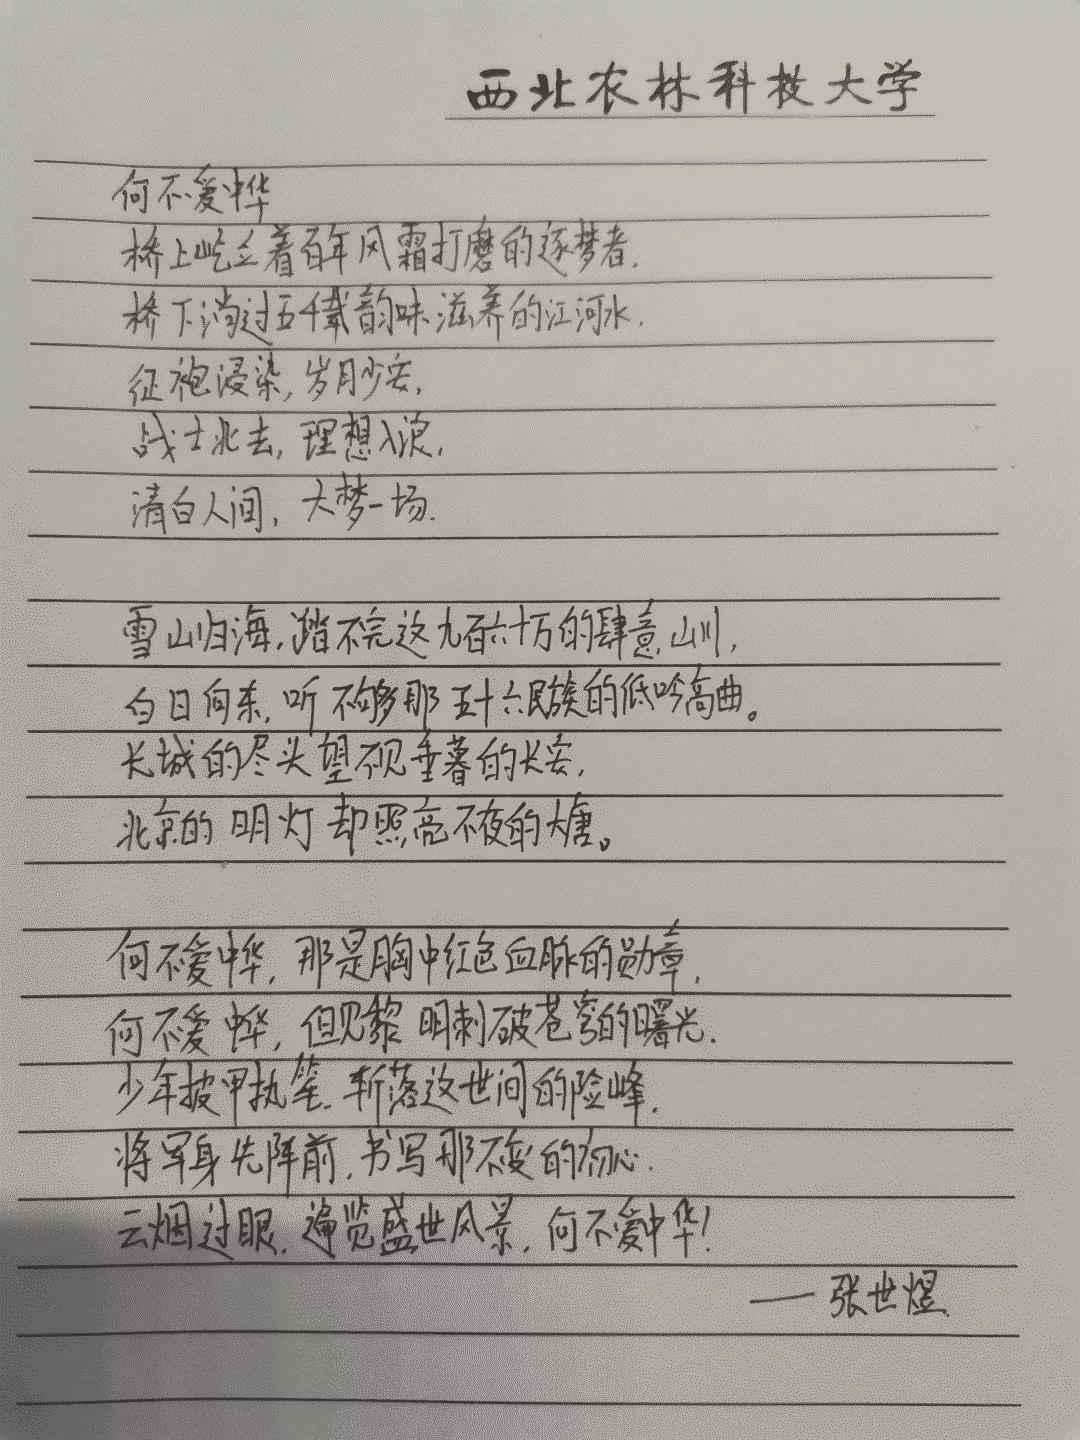 西北农林科技大学
何不爱中华
桥上屹立着百年风霜打磨的逐梦者.
桥下淌过五千载韵味滋养的江河水.
征袍浸染,岁月少安,
战士北去,理想入浪,
清白人间,大梦一场.
雪山归海,踏不完这九百六十万的肆意山川,
白日向东,听不够那五十六民族的低吟高曲。
长城的尽头望不见垂暮的长安,
北京的明灯却照亮不夜的大唐。
何不爱中华,那是胸中红色血脉的勋章,
何不爱中华,但见黎明刺破苍穹的曙光.
少年披甲执笔.斩落这世间的险峰.
将军身先阵前,书写那不变的初心.
云烟过眼,遍览盛世风景,何不爱中华!
——张世煜.